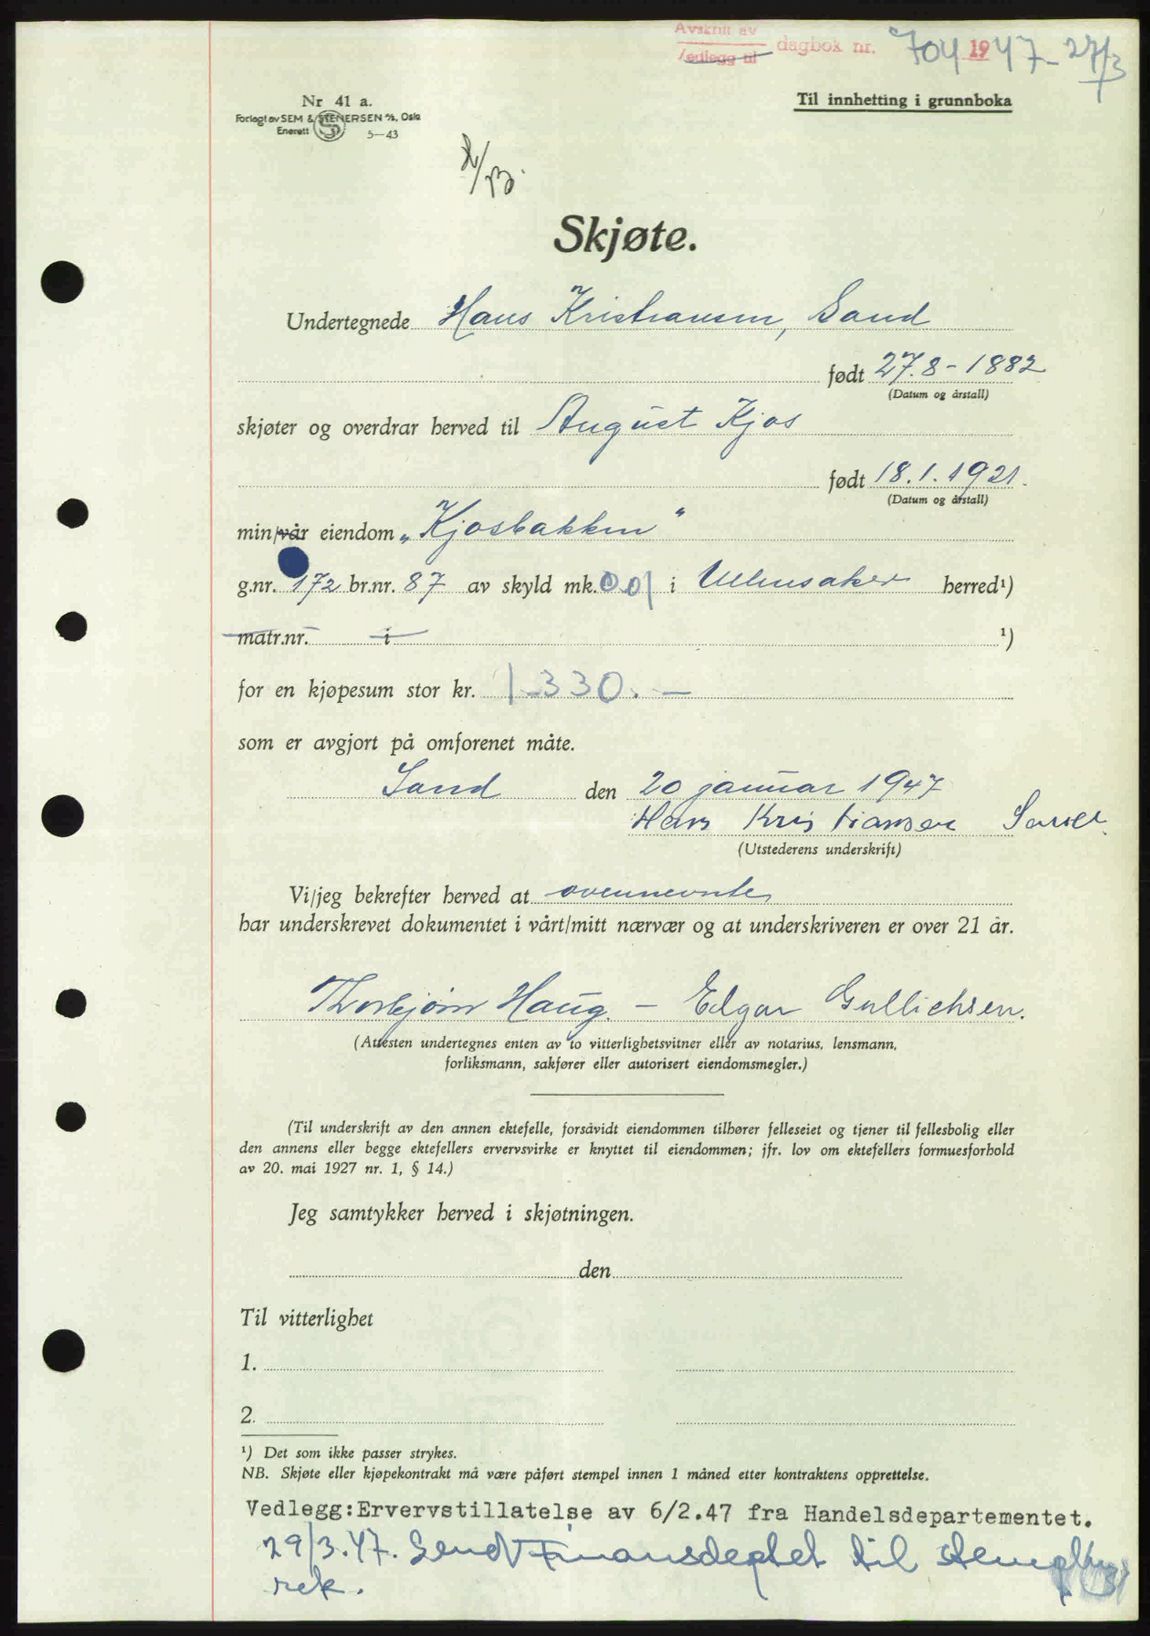 Avskrift av
Vedlegg til dagbok nr. 704 1947 - 27/3
Nr 41 a.
Forlagt av SEM & STENERSEN A/S, Oslo
Enerett S 5—43
Til innhetting i grunnboka
Skjøte.
Undertegnede Hans Kristiansen, Sand
født 27.8 - 1882
(Datum og årstall)
skjøter og overdrar herved til August Kjos
født 18.1.1921.
(Datum og årstall)
min/vår eiendom „Kjosbakken"
g.nr. 172 br.nr. 87 av skyld mk. 0.01 i Ullensaker herred¹)
matr.nr. i ¹)
for en kjøpesum stor kr. 1330.—
som er avgjort på omforenet måte.
Sand den 20 januar 1947
Hans Kristiansen Sand
(Utstederens underskrift)
Vi/jeg bekrefter herved at ovennevnte
har underskrevet dokumentet i vårt/mitt nærvær og at underskriveren er over 21 år.
Thorbjørn Haug. — Edgar Gullichsen.
(Attesten undertegnes enten av to vitterlighetsvitner eller av notarius, lensmann,
forliksmann, sakfører eller autorisert eiendomsmegler.)
(Til underskrift av den annen ektefelle, forsåvidt eiendommen tilhører felleseiet og tjener til fellesbolig eller
den annens eller begge ektefellers ervervsvirke er knyttet til eiendommen; jfr. lov om ektefellers formuesforhold
av 20. mai 1927 nr. 1, § 14.)
Jeg samtykker herved i skjøtningen.
den
Til vitterlighet
1.
2.
¹) Det som ikke passer strykes.
NB. Skjøte eller kjøpekontrakt må være påført stempel innen 1 måned etter kontraktens opprettelse.
Vedlegg:Ervervstillatelse av 6/2.47 fra Handelsdepartementet.
29/3.47. Sendt Finansdeptet til
rek.